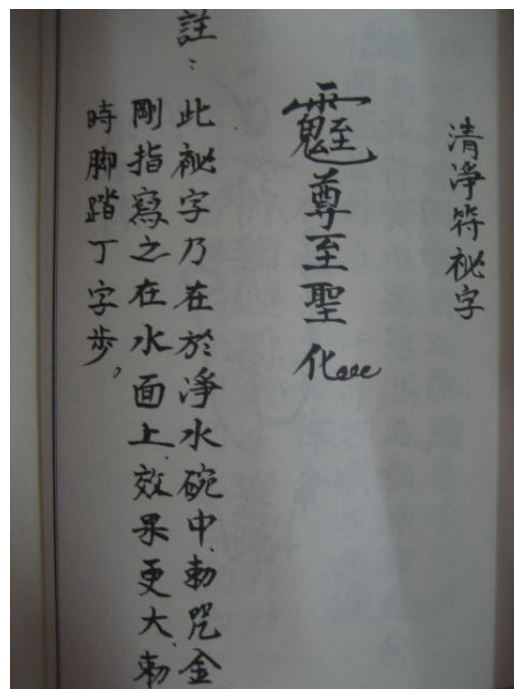 清淨符祕字
尊至聖 化
註：
此祕字乃在於淨水碗中、勅咒金
剛指寫之在水面上、效果更大、勅
時腳踏丁字步。